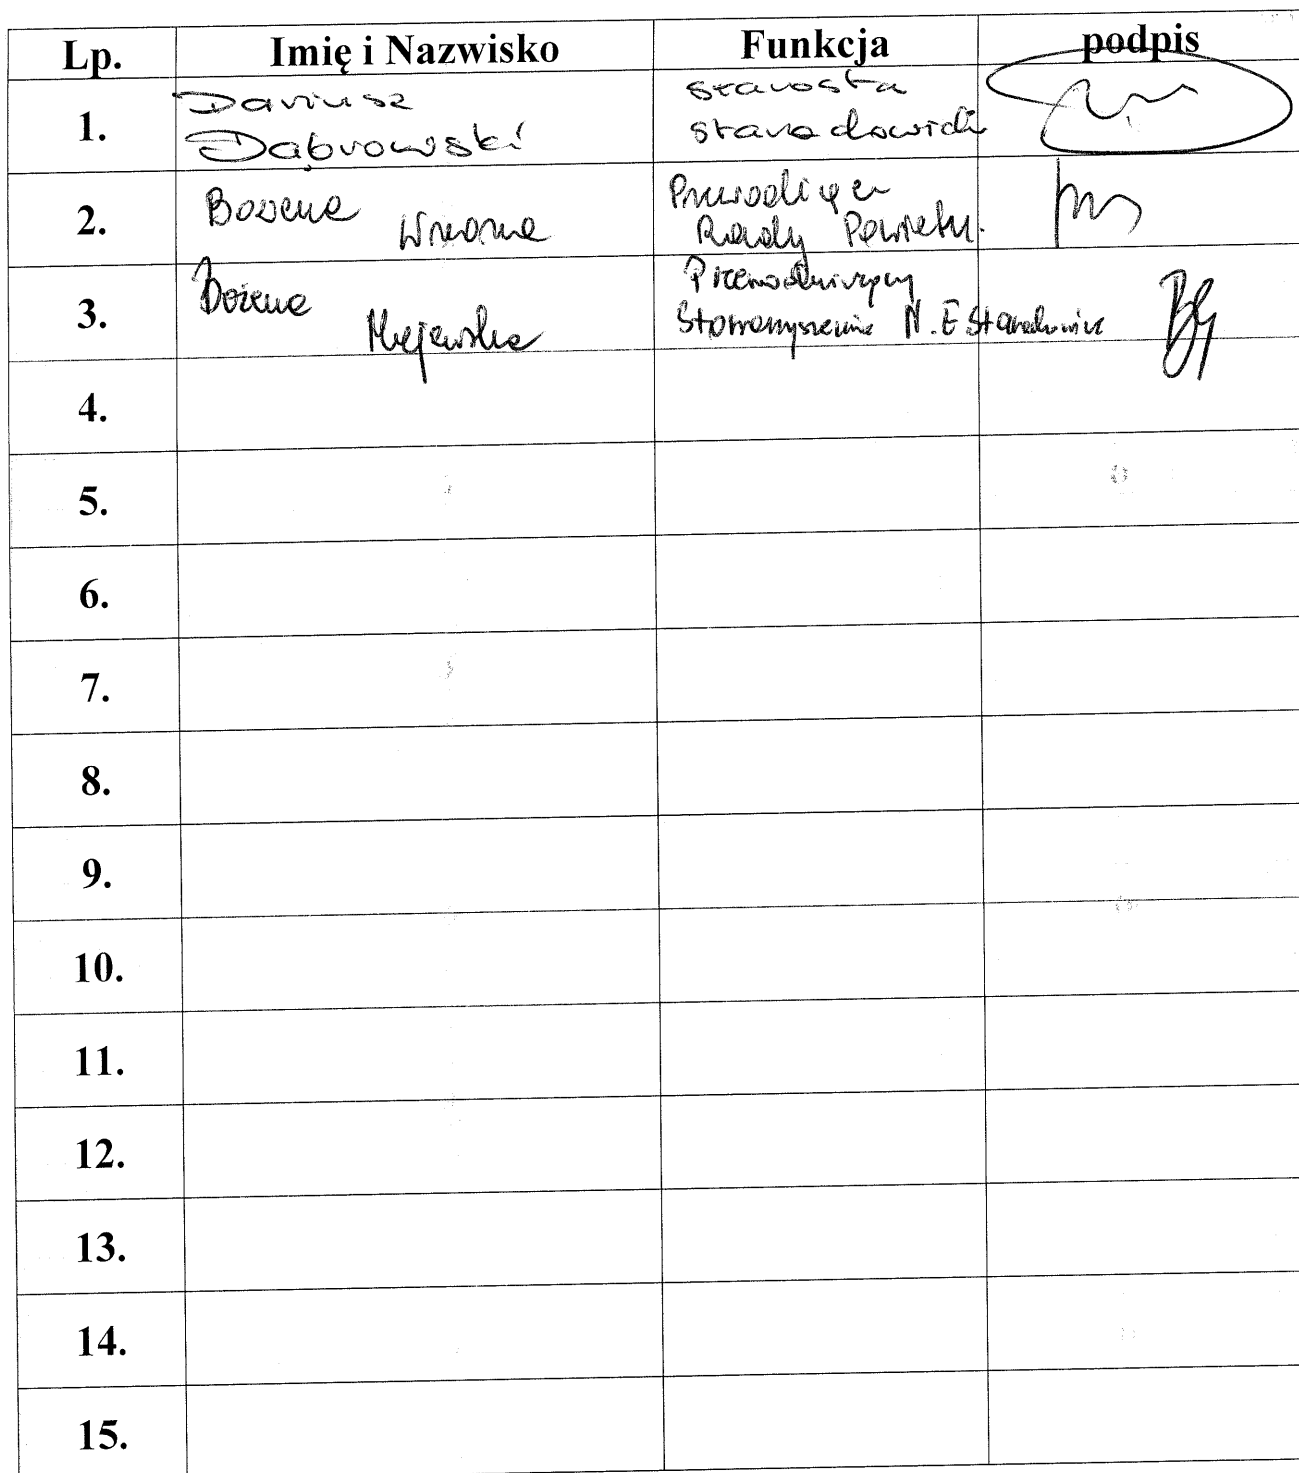 Lp. Imię i Nazwisko Funkcja podpis
1. Dariusz Dąbrowski starosta starachowicki
2. Bożena Wrona Rady Powiatu.
3. Bożena Majewska Przewodniczący Stowarzyszenia N.E Starachowice
4.
5.
6.
7.
8.
9.
10.
11.
12.
13.
14.
15.